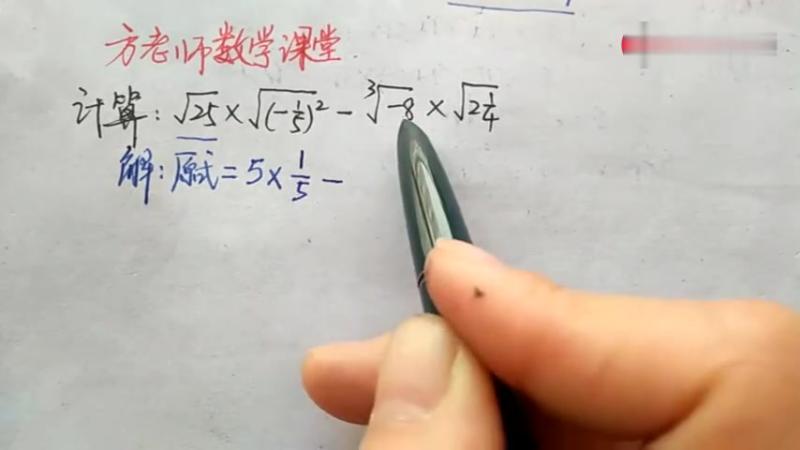 方老师数学课堂
计算：√25×√(-1/5)²-³√-8×√2 1/4
解：原式=5×1/5-